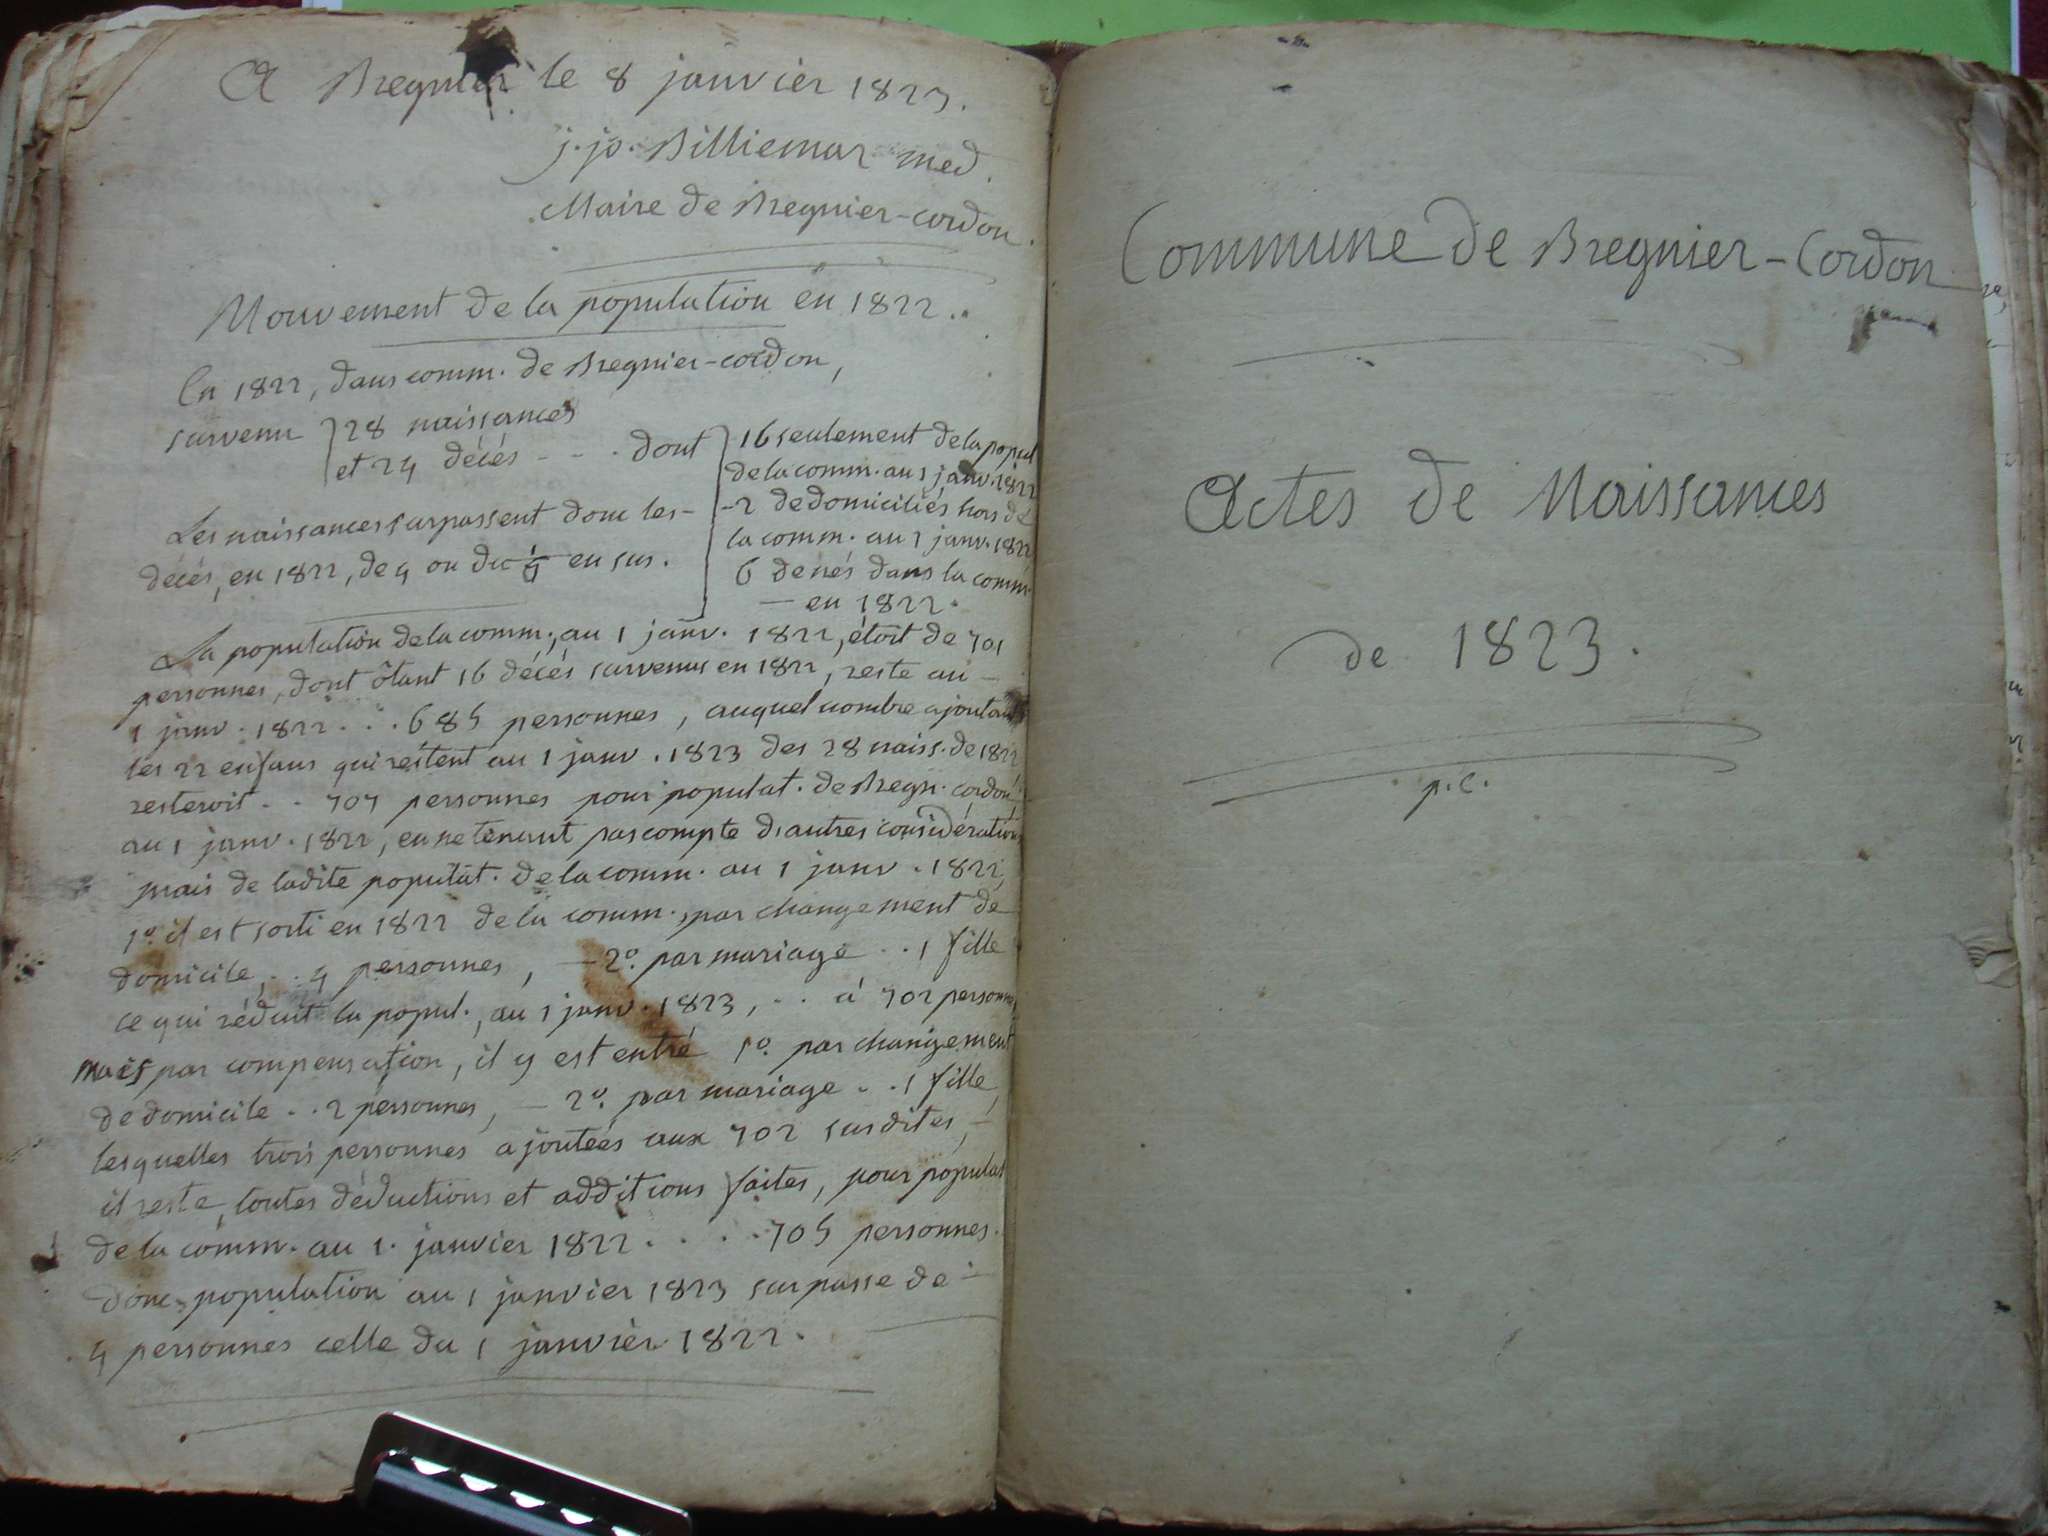 A Bregnier le 8 janvier 1823.
j. jo. Billiemaz med.
Maire de Bregnier-cordon.
Mouvement de la population en 1822..
En 1822, dans comm. de Bregnier-cordon,
survenu } 28 naissances
et 24 décés - - . dont
16 seulement de la popul
de la comm. au 1 janv. 1822
- 2 de domiciliés hors de
la comm. au 1 janv. 1822
6 de nés dans la comm.
— en 1822.
Les naissances surpassent donc les -
décés, en 1822, de 4 ou du 1/6 en sus.
La population de la comm., au 1 janv. 1822, étoit de 701
personnes, dont ôtant 16 décés survenus en 1822, reste au -
1 janv. 1822 . . . 685 personnes, auquel nombre ajoutant
les 22 enfans qui restent au 1 janv. 1823 des 28 naiss. de 1822
resteroit . . 707 personnes pour populat. de Bregn. cordon
au 1 janv. 1822, en ne tenant pas compte d'autres considérations
mais de ladite populat. de la comm. au 1 janv. 1822,
1o. il est sorti en 1822 de la comm., par changement de
domicile, . . 4 personnes, — 2o. par mariage . . 1 fille
ce qui réduit la popul., au 1 janv. 1823, . . à 702 personnes
mais par compensation, il y est entré 1o. par changement
de domicile . . 2 personnes, — 2o. par mariage . . 1 fille,
lesquelles trois personnes ajoutées aux 702 susdites, -
il reste, toutes déductions et additions faites, pour populat
de la comm. au 1. janvier 1822 . . . . 705 personnes.
Donc population au 1 janvier 1823 surpasse de -
4 personnes celle du 1 janvier 1822.
Commune de Bregnier-Cordon
Actes de Naissances
de 1823.
p.c.